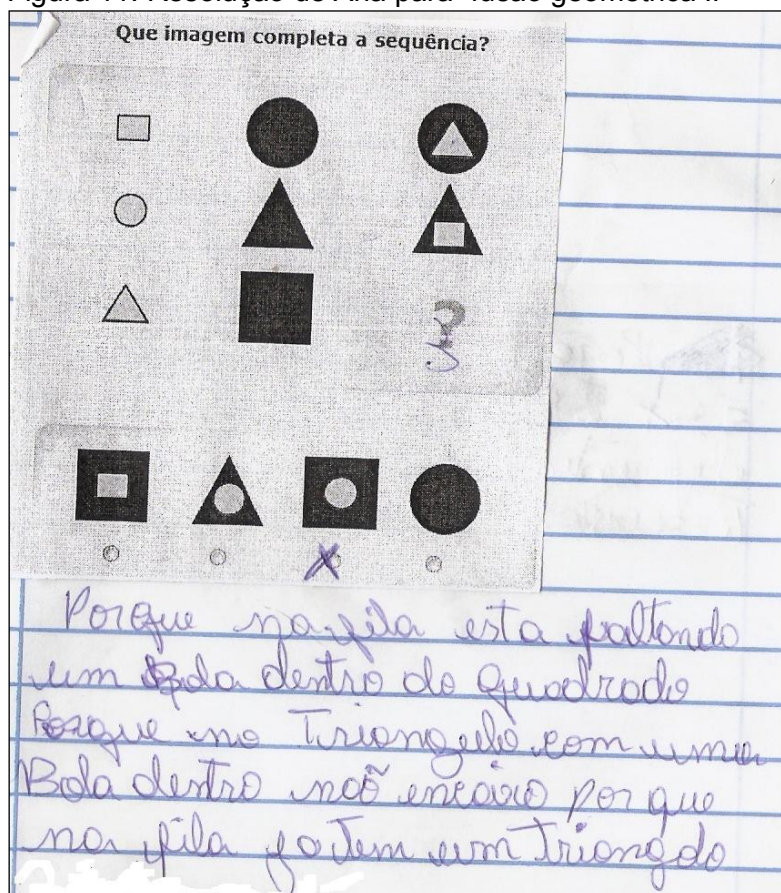 Que imagem completa a sequência?
?
Porque na fila esta faltando
um Bola dentro do Quadrado
Porque no Triangulo com uma
Bola dentro não encaixo por que
na fila ja tem um triangolo